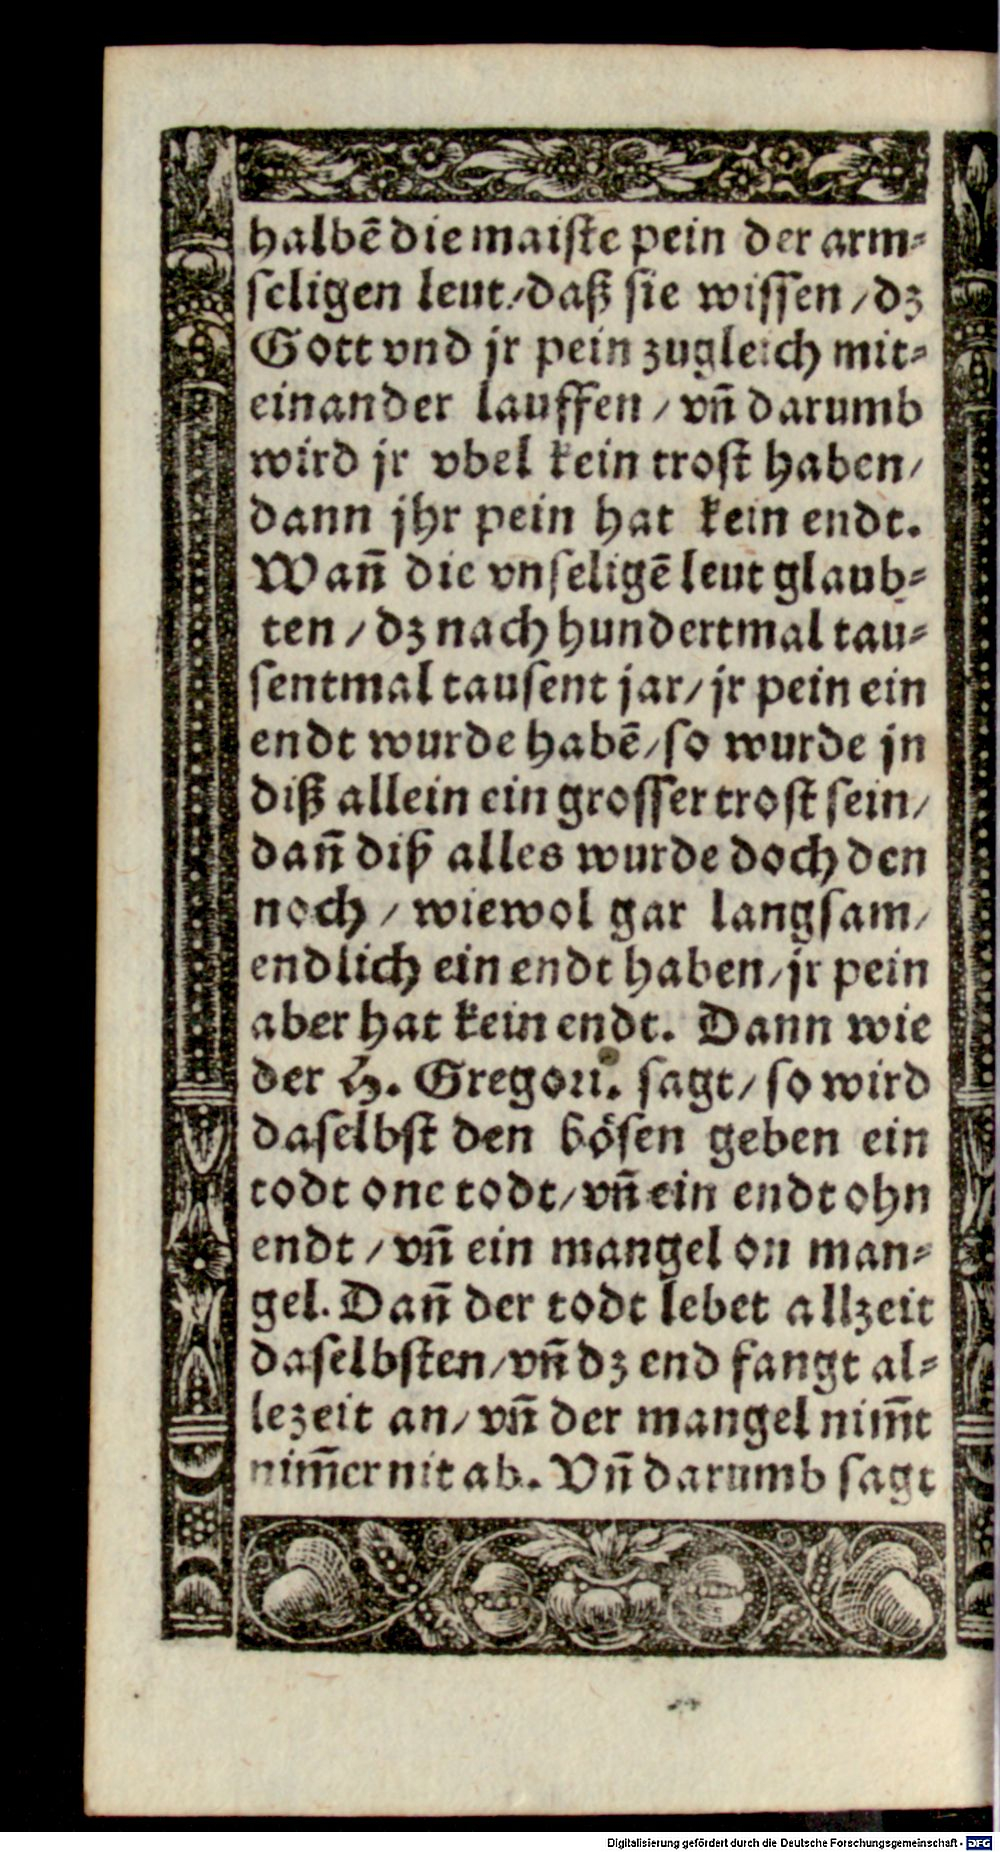 halbē die maiste pein der arm⸗
seligen leut/daß sie wissen/dz
Gott vnd jr pein zugleich mit⸗
einander lauffen/vn̄ darumb
wird jr vbel kein trost haben/
dann jhr pein hat kein endt.
Wan̄ die vnseligē leut glaub⸗
ten/dz nach hundertmal tau⸗
sentmal tausent jar/jr pein ein
endt wurde habē/so wurde jn
diß allein ein grosser trost sein/
dan̄ diß alles wurde doch den
noch/wiewol gar langsam/
endlich ein endt haben/jr pein
aber hat kein endt. Dann wie
der H. Gregori. sagt/so wird
daselbst den bösen geben ein
todt one todt/vn̄ ein endt ohn
endt/vn̄ ein mangel on man⸗
gel. Dan̄ der todt lebet allzeit
daselbsten/vn̄ dz end fangt al⸗
lezeit an/vn̄ der mangel nim̄t
nim̄er nit ab. Vn̄ darumb sagt
Digitalisierung gefördert durch die Deutsche Forschungsgemeinschaft - DFG